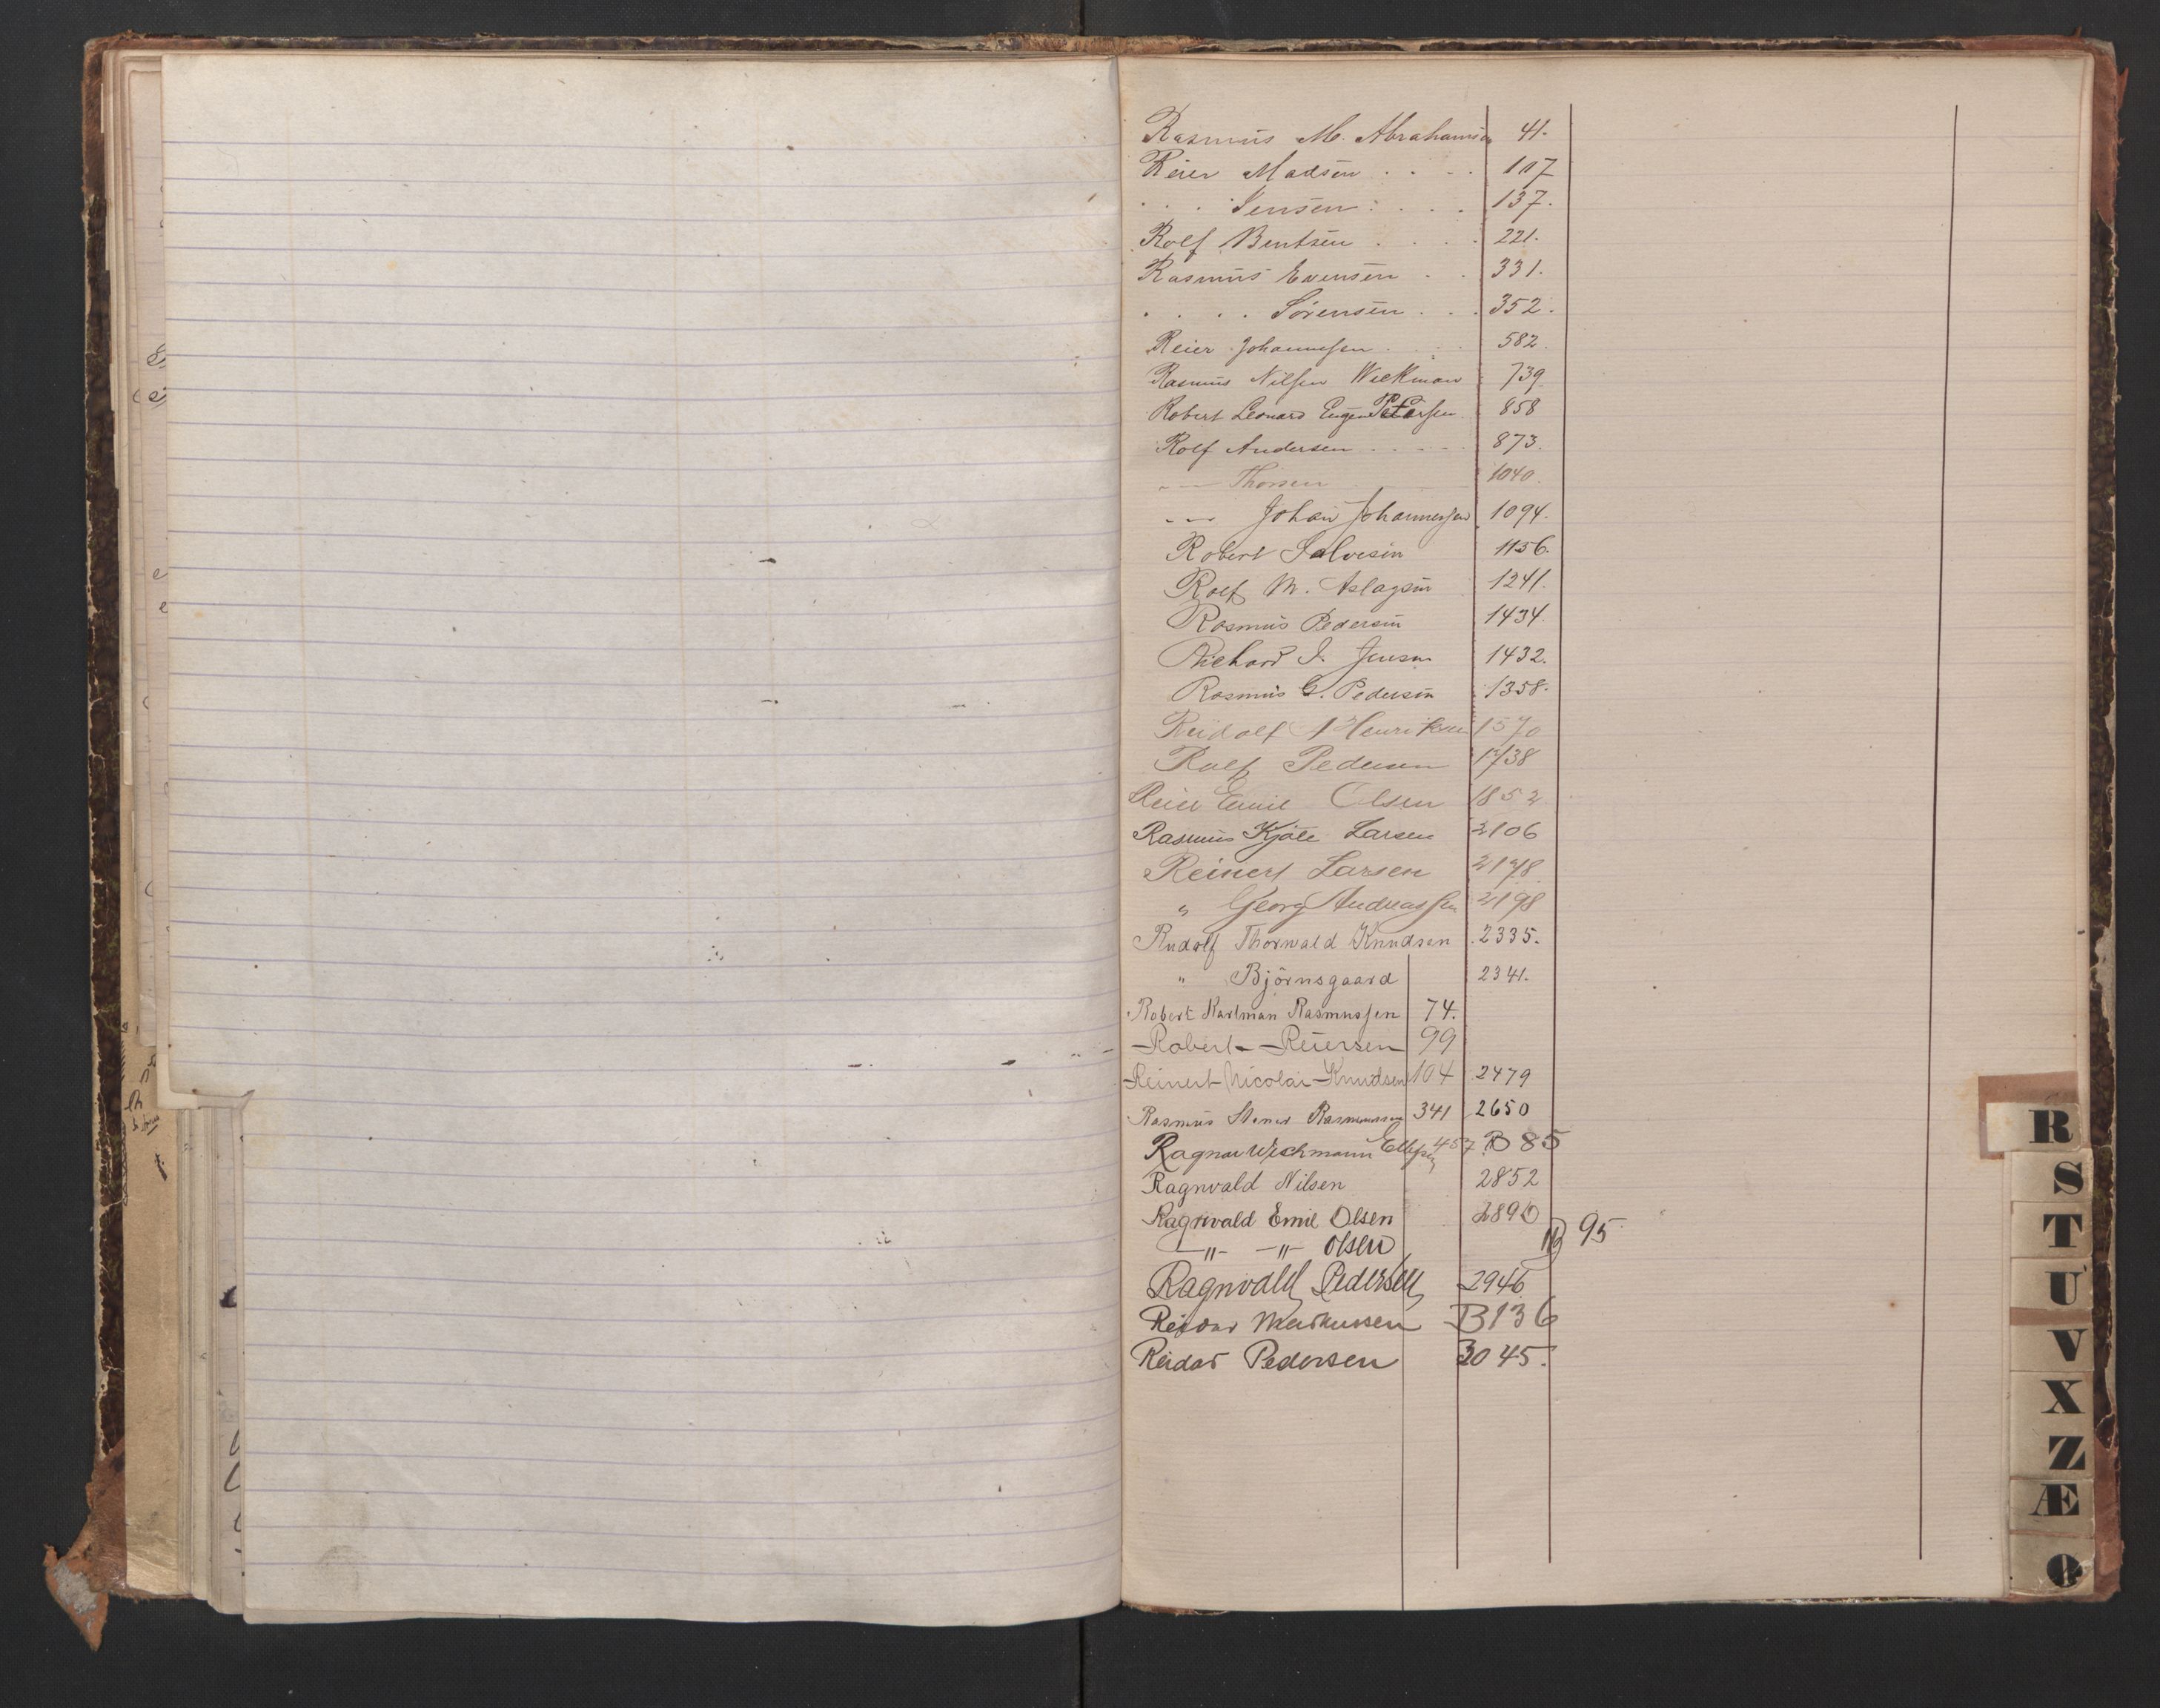 Rasmus M. Abrahamsen 41.
Reier Madsen . . . . 107
. . . Jensen . . . . 137.
Rolf Bentsen . . . . 221.
Rasmus Evensen . . 331.
. . . . Sørensen . . . 352.
Reier Johannesen . . . 582.
Rasmus Nilsen Wiekman 739.
Robert Leonard Eugen Petersen 858
Rolf Andersen . . . . . 873.
" — Thorsen 1040.
" — Johan Johannessen 1094.
Robert Salvesen 1156.
Rolf M. Aslagsen 1241.
Rasmus Pedersen 1434.
Richard J. Jensen 1432.
Rasmus G. Pedersen 1358.
Rudolf Henriksen 1570
Rolf Pedersen 1738
Reier Emil Olsen 1852
Rasmus Kjøle Larsen 2106
Reinert Larsen 2178
" Georg Andreassen 2198
Rudolf Thorwald Knudsen 2335.
" Björnsgaard 2341.
Robert Karlman Rasmussen 74.
Robert Reiersen 99
Reinert Nicolai Knudsen 104 2479
Rasmus Stener Rasmussen 341 2650
Ragnar Wichmann Ellefsen 457 B 85
Ragnvald Nilsen 2852
Ragnvald Emil Olsen 2890
—"— —"— Olsen B 95
Ragnvald Pedersen 2946
Reidar Markussen B 136
Reidar Pedersen 3045.
R
S
T
U
V
X
Z
Æ
Ø